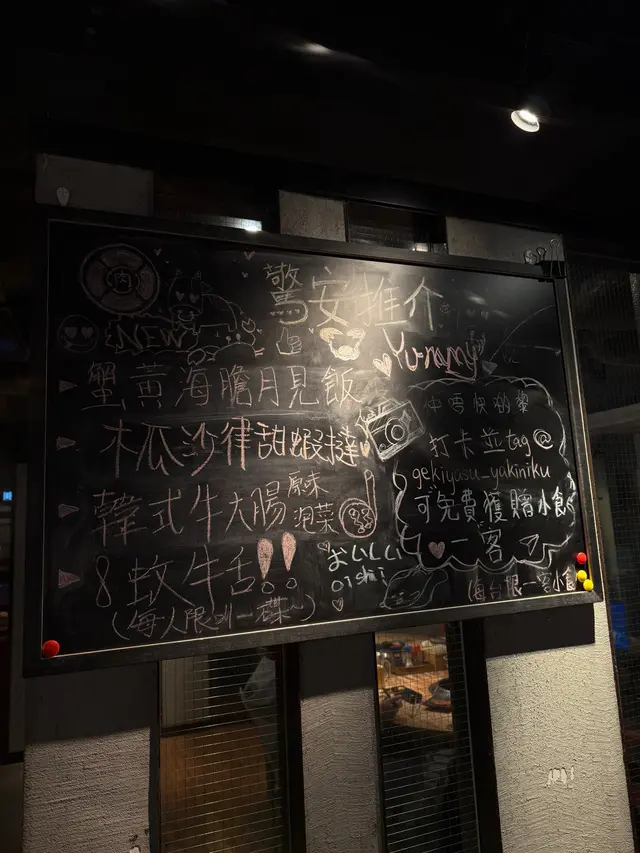 肉
驚安推介
NEW
Yummy
蟹黃海膽月見飯
木瓜沙律甜蝦撻
韓式牛大腸 原味 泡菜
8蚊牛舌!!
(每人限叫一碟~)
おいしい
oishi
仲唔快的黎
打卡並tag@
gekiyasu_yakiniku
可免費獲贈小食
一客
(每台限一客小食